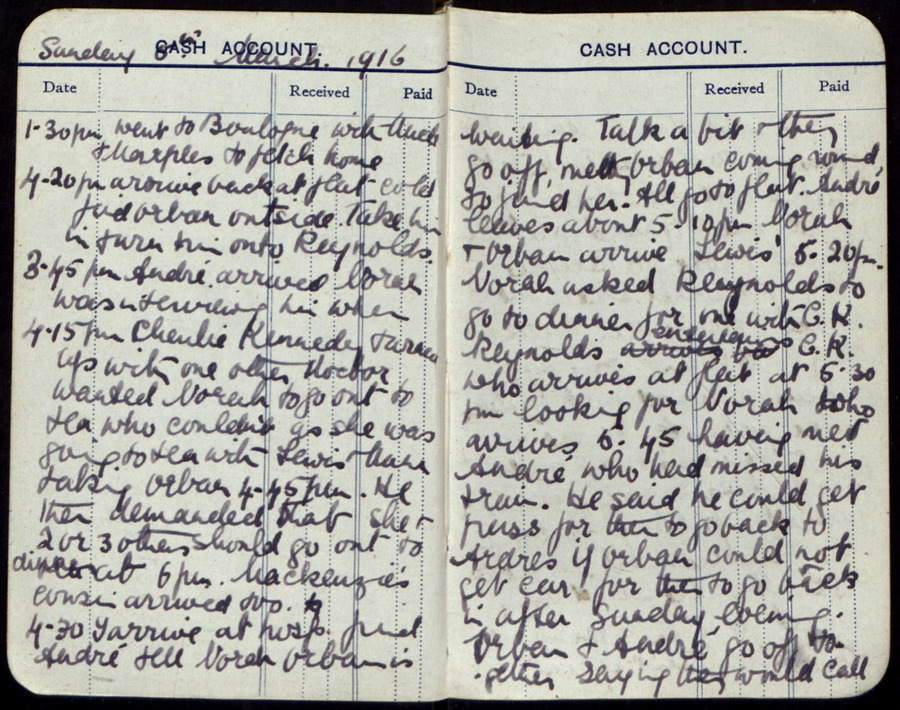 CASH ACCOUNT.
Sunday 5th March. 1916
Date Received Paid
1-30pm went to Boulogne with
& Marples to fetch home
4-20pm arrive back at flat cold
find Urban outside. Take him
in turn him onto Reynolds.
3-45 pm André arrived Norah
was interviewing him when
4-15pm Charlie Kennedy turned
up with one other Doctor
wanted Norah to go out to
tea who couldn't go as she was
going to tea with Lewis
taking Urban 4-45pm. He
then demanded that she &
2 or 3 others should go out to
dinner at 6pm. Mackenzie's
cousin arrived too.
4-30 I arrive at hosp. find
André tell Norah Urban is
CASH ACCOUNT.
Date Received Paid
waiting. Talk a bit & they
go off, meet Urban coming round
to find her. All go to flat. André
leaves about 5-10pm Norah
& Urban arrive Lewis' 5-20pm.
Norah asked Reynolds to
go to dinner for me with C.K.
Reynolds arrives C.K.
who arrives at flat at 5-30
pm looking for Norah who
arrives 5-45 having met
André who had missed his
train. He said he could get
pass for to go back to
Ardres if Urban could not
get car for to go back
in after Sunday evening.
Urban & André go off to-
gether saying they would call